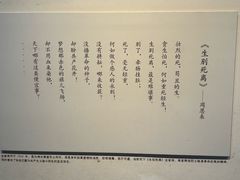 《生别死离》——周恩来
壮烈的死，苟且的生。
贪生怕死，何如重死轻生！
生别死离，最是难堪事。
别了，牵肠挂肚；
死了，毫无轻重，
何如做个感人的永别！
没有耕耘，哪来收获？
没播革命的种子，
却盼共产花开！
梦想赤色的旗儿飞扬，
却不用血来染他，
天下哪有这类便宜事？